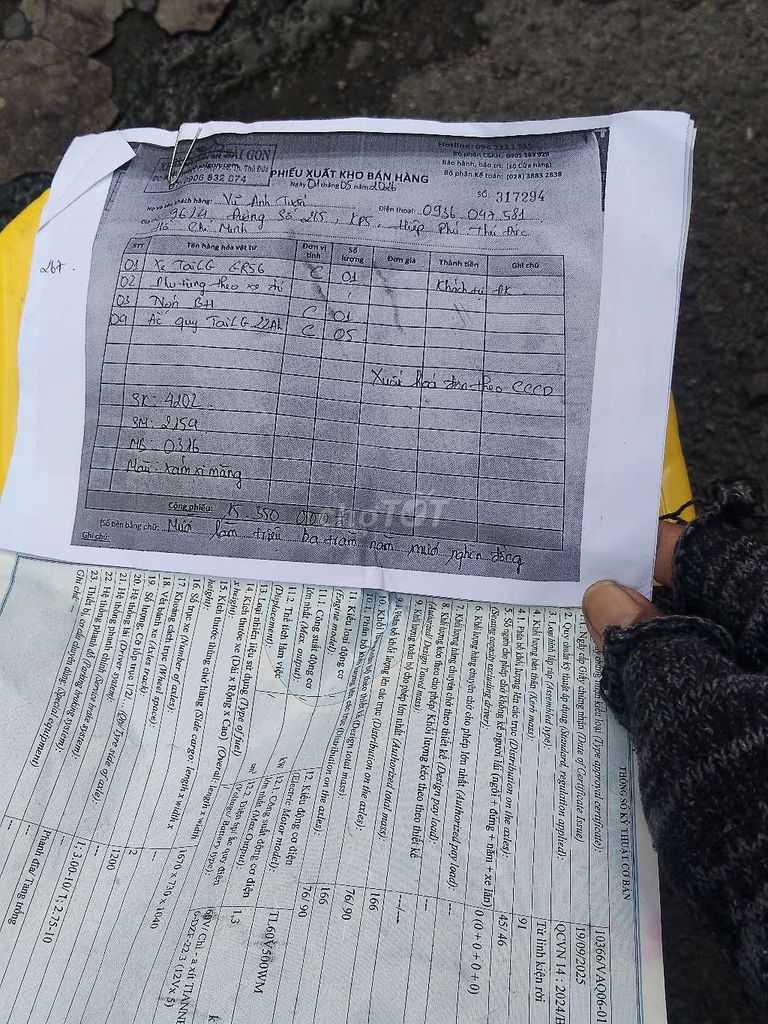 SÀI GÒN
0906 832 074
PHIẾU XUẤT KHO BÁN HÀNG
Ngày 01 tháng 05 năm 2026
Bảo hành, bảo trì: (số Cửa hàng)
Bộ phận Kế toán: (028) 3883 2838
SỐ: 317294
khách hàng: Vũ Anh Tuấn
Điện thoại: 0936 047 581
96/4, Đường Số 265, KP5, Hiệp Phú Thủ Đức
Hồ Chí Minh
267
STT Tên hàng hóa vật tư Đơn vị tính Số lượng Đơn giá Thành tiền Ghi chú
01 Xe TaiLG GR56 C 01
02 Phụ tùng theo xe
03 Nón BH C 01
04 Ắc quy TaiLG 22Ah C 05
Xuất hoá đơn theo CCCD
SK: 4202
SM: 2159
MB: 0326
Màu: xám xi măng
Cộng phiếu: 15.350 000
chợTỐT
(Số tiền bằng chữ: Mười lăm triệu ba trăm năm mươi nghìn đồng
Ghi chú:
THÔNG SỐ KỸ THUẬT CƠ BẢN
(Type approval certificate): 10366/VAQ06-01
1. Ngày cấp Giấy chứng nhận (Date of Certificate Issue) 19/09/2025
2. Quy chuẩn kỹ thuật áp dụng (Standard, regulation applied): QCVN 14 : 2024/B
3. Loại hình lắp ráp (Assembled type): Từ linh kiện rời
4. Khối lượng bản thân (Kerb mass): 91
4.1. Phân bố khối lượng lên các trục (Distribution on the axles): 45/ 46
5. Số người cho phép chở không kể người lái (ngồi + đứng + nằm + xe lăn)
(Seating capacity excluding driver): 0 (0 + 0 + 0 + 0)
6. Khối lượng hàng chuyên chở cho phép lớn nhất (Authorized pay load): ---
7. Khối lượng hàng chuyên chở theo thiết kế (Design pay load): ---
8. Khối lượng kéo theo cho phép/ Khối lượng kéo theo theo thiết kế
(Authorized/ Design Towed mass): ---/---
9. Khối lượng toàn bộ cho phép lớn nhất (Authorized total mass): 166
9.1. Phân bố khối lượng lên các trục (Distribution on the axles): 76/ 90
10. Khối lượng toàn bộ theo thiết kế (Design total mass): 166
10.1. Phân bố khối lượng lên các trục (Distribution on the axles): 76/ 90
11. Kiểu loại động cơ
(Engine model):
12. Kiểu động cơ điện
(Electric Motor model): TL60V500WM
11.1. Công suất động cơ
lớn nhất (Max. output): kW
12.1. Công suất động cơ điện
lớn nhất (Max. Output): 1,3
11.2. Thể tích làm việc
(Displacement):
13. Loại nhiên liệu sử dụng (Type of fuel)
14. Kích thước xe (Dài x Rộng x Cao) (Overall: length x width
x height): 1670 x 730 x 1040
15. Kích thước thùng chở hàng (Side cargo: length x width x
height):
16. Số trục xe (Number of axles): 2
17. Khoảng cách trục (Wheel space): 1200
18. Vết bánh xe (Axles Track) --
19. Số lượng, Cỡ lốp trục 1/2/... (No/ Tyre side of axle): 1; 3.00-10/ 1; 2.75-10
20. Hệ thống lái (Driver System): --
21. Hệ thống phanh chính (Service brake system): Phanh đĩa/ Tang trống
22. Hệ thống phanh đỗ (Parking brake system): --
23. Thiết bị cơ cấu chuyên dùng (Special equipment) --
Ghi chú: --